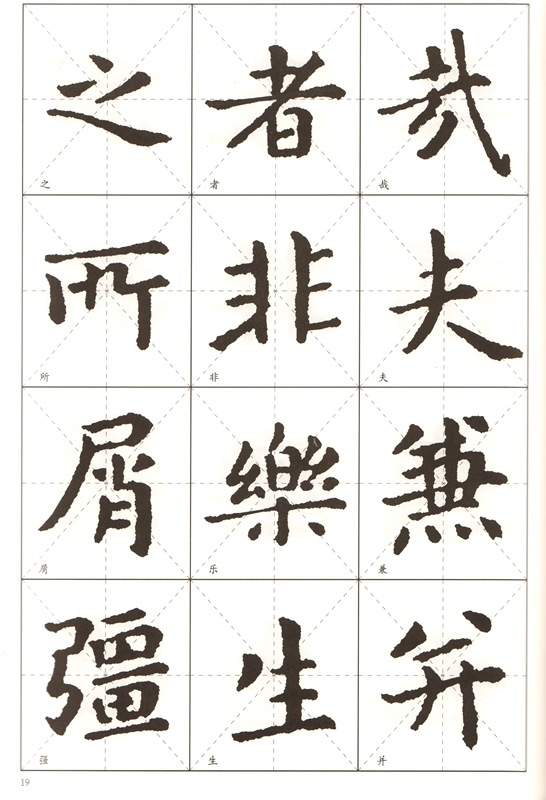 哉夫兼并
哉夫兼并
者非樂生
者非乐生
之所屑彊
之所屑强
19